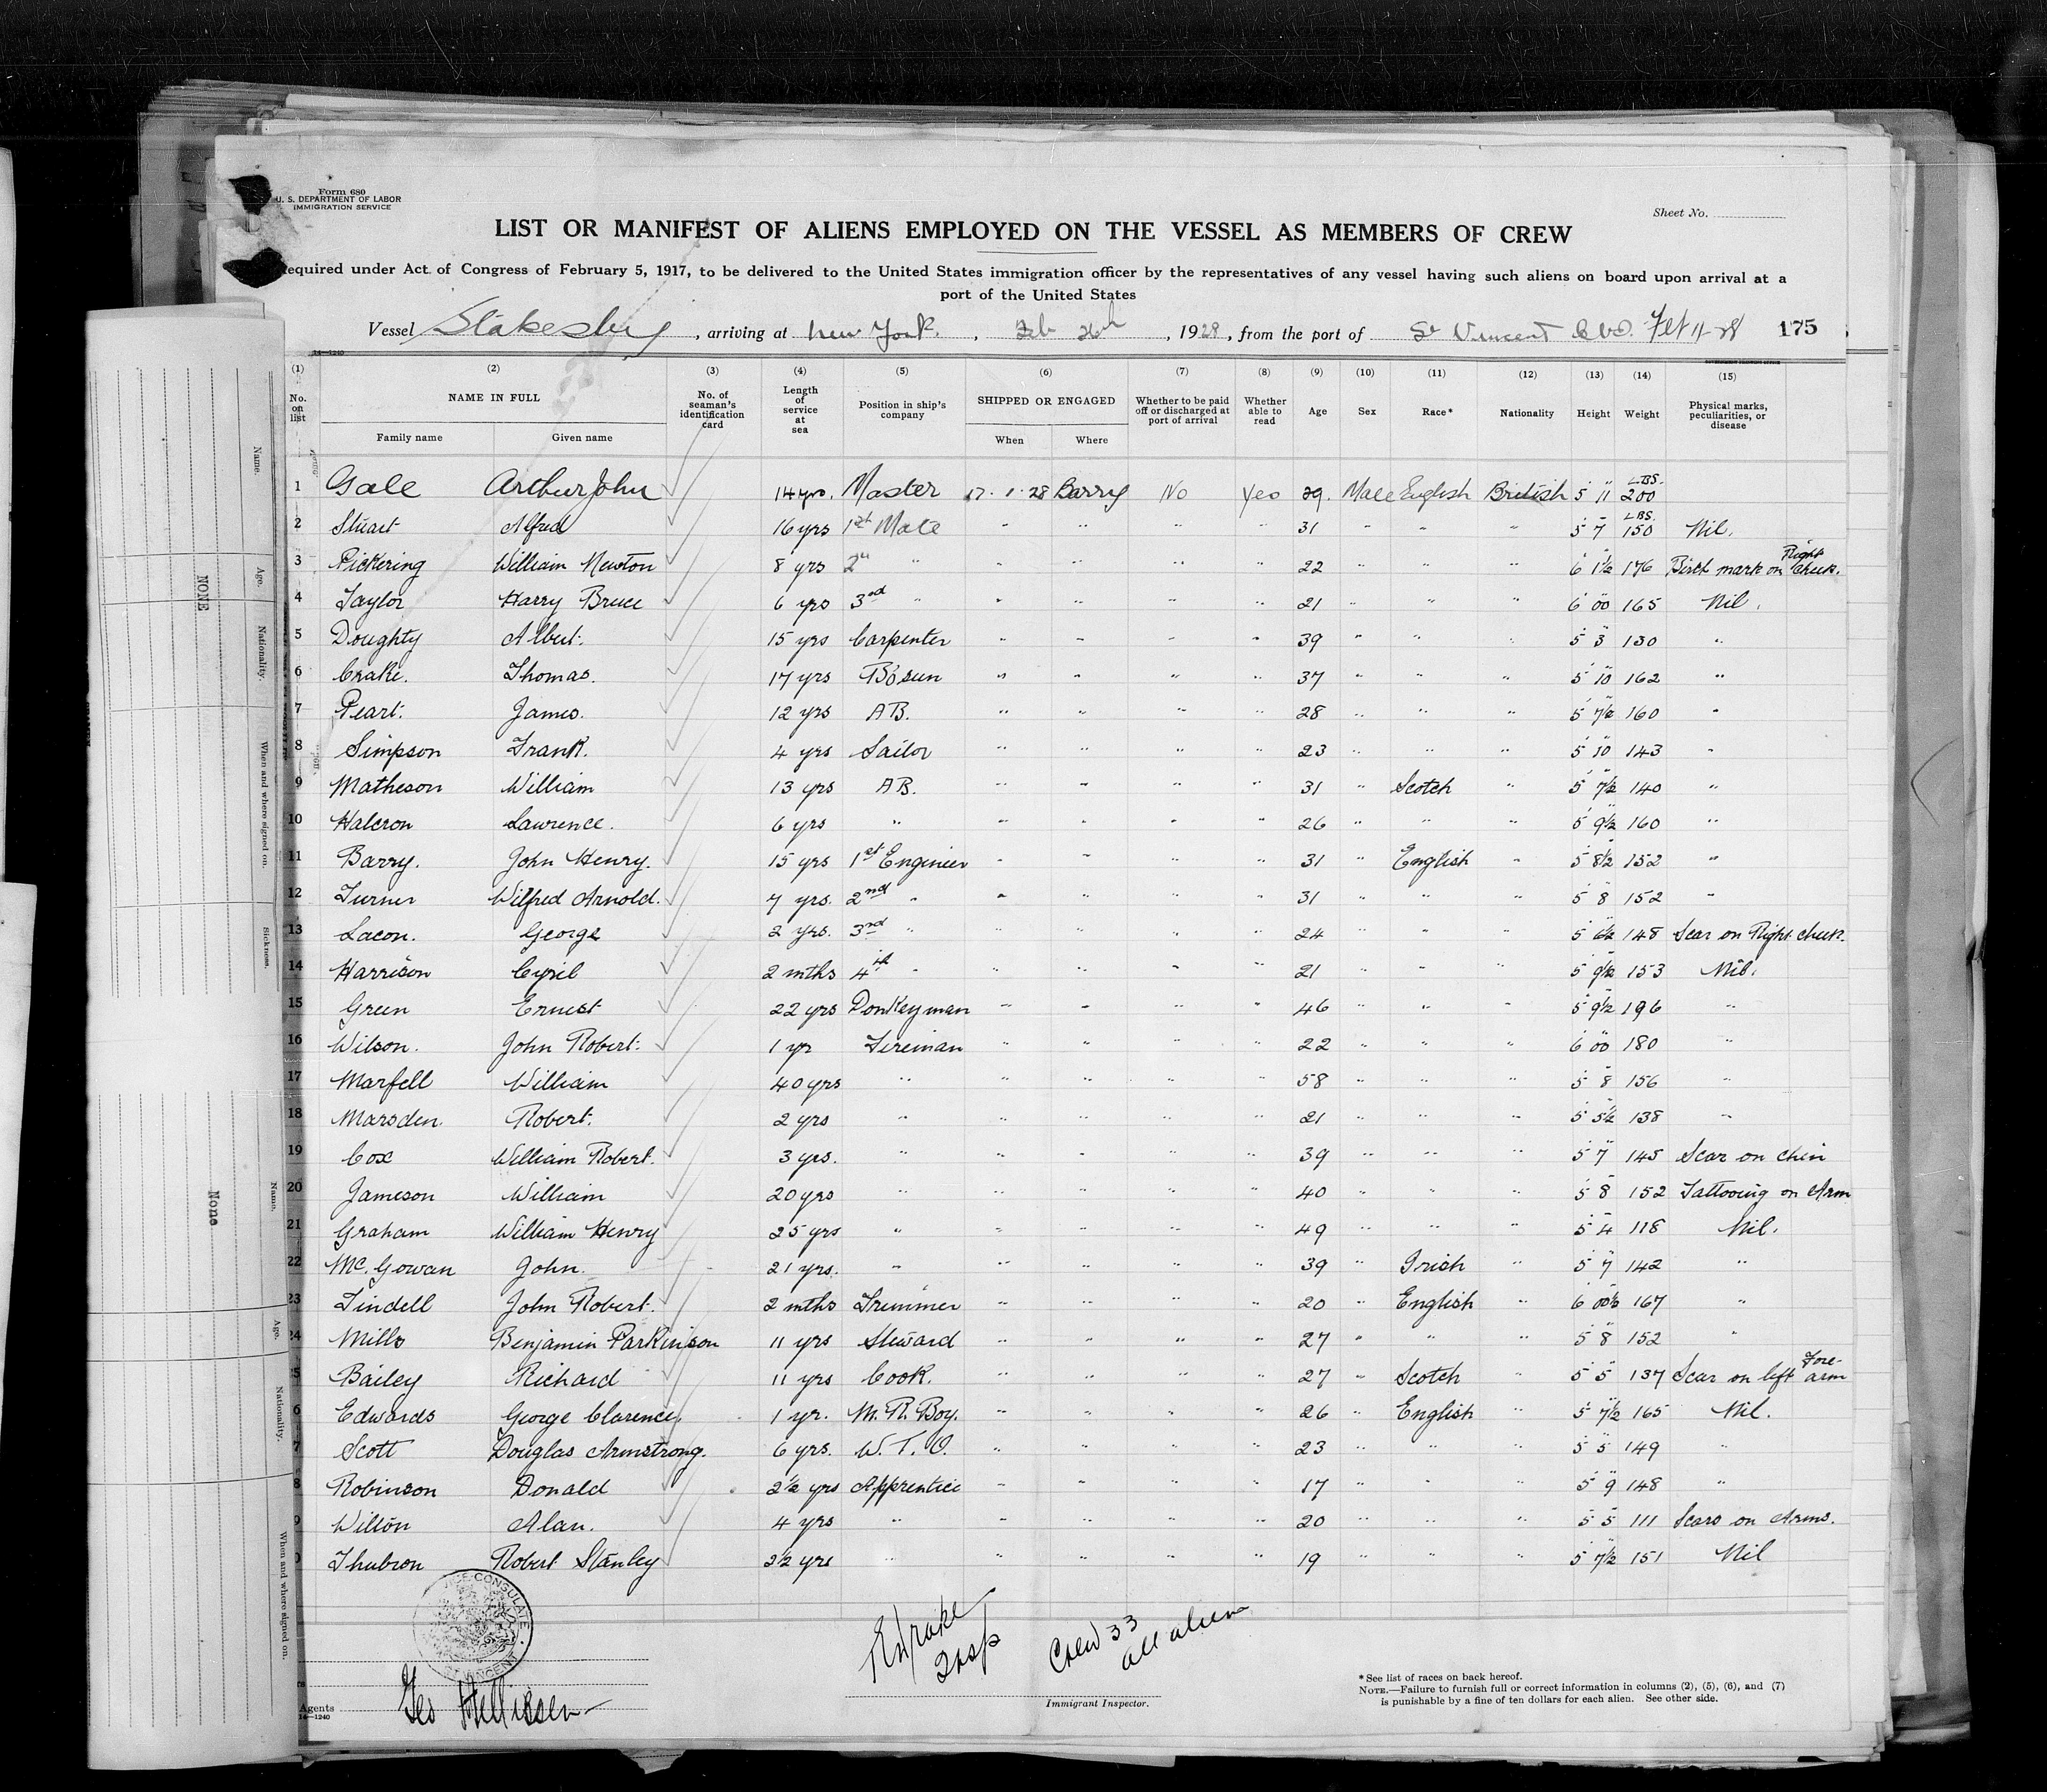 Form 680
U. S. DEPARTMENT OF LABOR
IMMIGRATION SERVICE
Sheet No.
LIST OR MANIFEST OF ALIENS EMPLOYED ON THE VESSEL AS MEMBERS OF CREW
Required under Act of Congress of February 5, 1917, to be delivered to the United States immigration officer by the representatives of any vessel having such aliens on board upon arrival at a
port of the United States
Vessel Stakesby, arriving at New York, Feb 26th, 1928, from the port of St Vincent C.V.I. Feb 11-28 175
14—1240
(1) (2) (3) (4) (5) (6) (7) (8) (9) (10) (11) (12) (13) (14) (15)
No. on list NAME IN FULL Family name Given name No. of seaman's identification card Length of service at sea Position in ship's company SHIPPED OR ENGAGED When Where Whether to be paid off or discharged at port of arrival Whether able to read Age Sex Race* Nationality Height Weight Physical marks, peculiarities, or disease
1 Gale Arthur John 14 yrs. Master 17.1.28 Barry No Yes 29. Male English British 5' 11" 200 LBS.
2 Stuart Alfred 16 yrs 1st Mate " " " " 31 " " " 5' 7" 150 LBS. Nil.
3 Pickering William Newton 8 yrs 2" " " " " " 22 " " " 6' 1½" 176 Birth mark on Right cheek.
4 Taylor Harry Bruce 6 yrs 3rd " " " " " 21 " " " 6' 00" 165 Nil.
5 Doughty Albert. 15 yrs Carpenter " " " " 39 " " " 5' 3" 130 "
6 Crake. Thomas. 17 yrs Bosun " " " " 37 " " " 5' 10" 162 "
7 Peart. James. 12 yrs AB. " " " " 28 " " " 5' 7½" 160 "
8 Simpson Frank. 4 yrs Sailor " " " " 23 " " " 5' 10" 143 "
9 Matheson William 13 yrs AB. " " " " 31 " Scotch " 5' 7½" 140 "
10 Halcron Lawrence. 6 yrs " " " " " 26 " " " 5' 9½" 160 "
11 Barry. John Henry. 15 yrs 1st Engineer " " " " 31 " English " 5' 8½" 152 "
12 Turner Wilfred Arnold. 7 yrs. 2nd " " " " " 31 " " " 5' 8" 152 "
13 Lacon. George 2 yrs. 3rd " " " " " 24 " " " 5' 6½" 148 Scar on Right cheek.
14 Harrison Cyril 2 mths 4th " " " " " 21 " " " 5' 9½" 153 Nil.
15 Green Ernest 22 yrs Donkeyman " " " " 46 " " " 5' 9½" 196 "
16 Wilson. John Robert. 1 yr Fireman " " " " 22 " " " 6' 00" 180 "
17 Marfell William 40 yrs " " " " " 58 " " " 5' 8" 156 "
18 Marsden Robert. 2 yrs " " " " " 21 " " " 5' 5½" 138 "
19 Cox William Robert. 3 yrs. " " " " " 39 " " " 5' 7" 145 Scar on chin
20 Jameson William 20 yrs " " " " " 40 " " " 5' 8" 152 Tattooing on Arm
21 Graham William Henry 25 yrs " " " " " 49 " " " 5' 4" 118 Nil.
22 Mc. Gowan John. 21 yrs. " " " " " 39 " Irish " 5' 7" 142 "
23 Tindell John Robert. 2 mths Trimmer " " " " 20 " English " 6' 00½" 167 "
24 Mills Benjamin Parkinson 11 yrs Steward " " " " 27 " " " 5' 8" 152 "
5 Bailey Richard 11 yrs Cook. " " " " 27 " Scotch " 5' 5" 137 Scar on left Fore-arm
6 Edwards George Clarence. 1 yr. M. R. Boy. " " " " 26 " English " 5' 7½" 165 Nil.
7 Scott Douglas Armstrong. 6 yrs. W. T. O. " " " " 23 " " " 5' 5" 149 "
8 Robinson Donald 2½ yrs Apprentice " " " " 17 " " " 5' 9" 148 "
9 Wilson Alan. 4 yrs " " " " " 20 " " " 5' 5" 111 Scars on Arms.
0 Thubron Robert Stanley 2½ yrs " " " " " 19 " " " 5' 7½" 151 Nil
VICE-CONSULATE
ST VINCENT
Insp
Crew 33
all aliens
Immigrant Inspector.
Agents
Geo
14—1240
*See list of races on back hereof.
NOTE.—Failure to furnish full or correct information in columns (2), (5), (6), and (7)
is punishable by a fine of ten dollars for each alien. See other side.
Name.
Age.
Nationality.
When and where signed on.
Sickness.
NONE
Name.
Age.
Nationality.
When and where signed on.
None